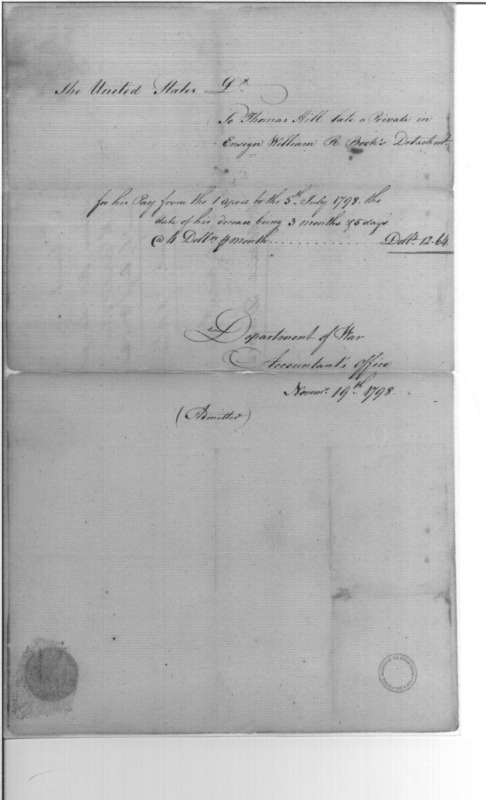 The United States Dr.
To Thomas Hill late a Private in
Ensign William R Boote's Detachmt.
for his Pay from the 1 April to the 5th July 1798 the
date of his being 3 months & 5 days
@ 4 Dolls. month .......... Dolls. 12.64
Department of War
Accountant's office
Novemr. 19th 1798.
(Admitted)